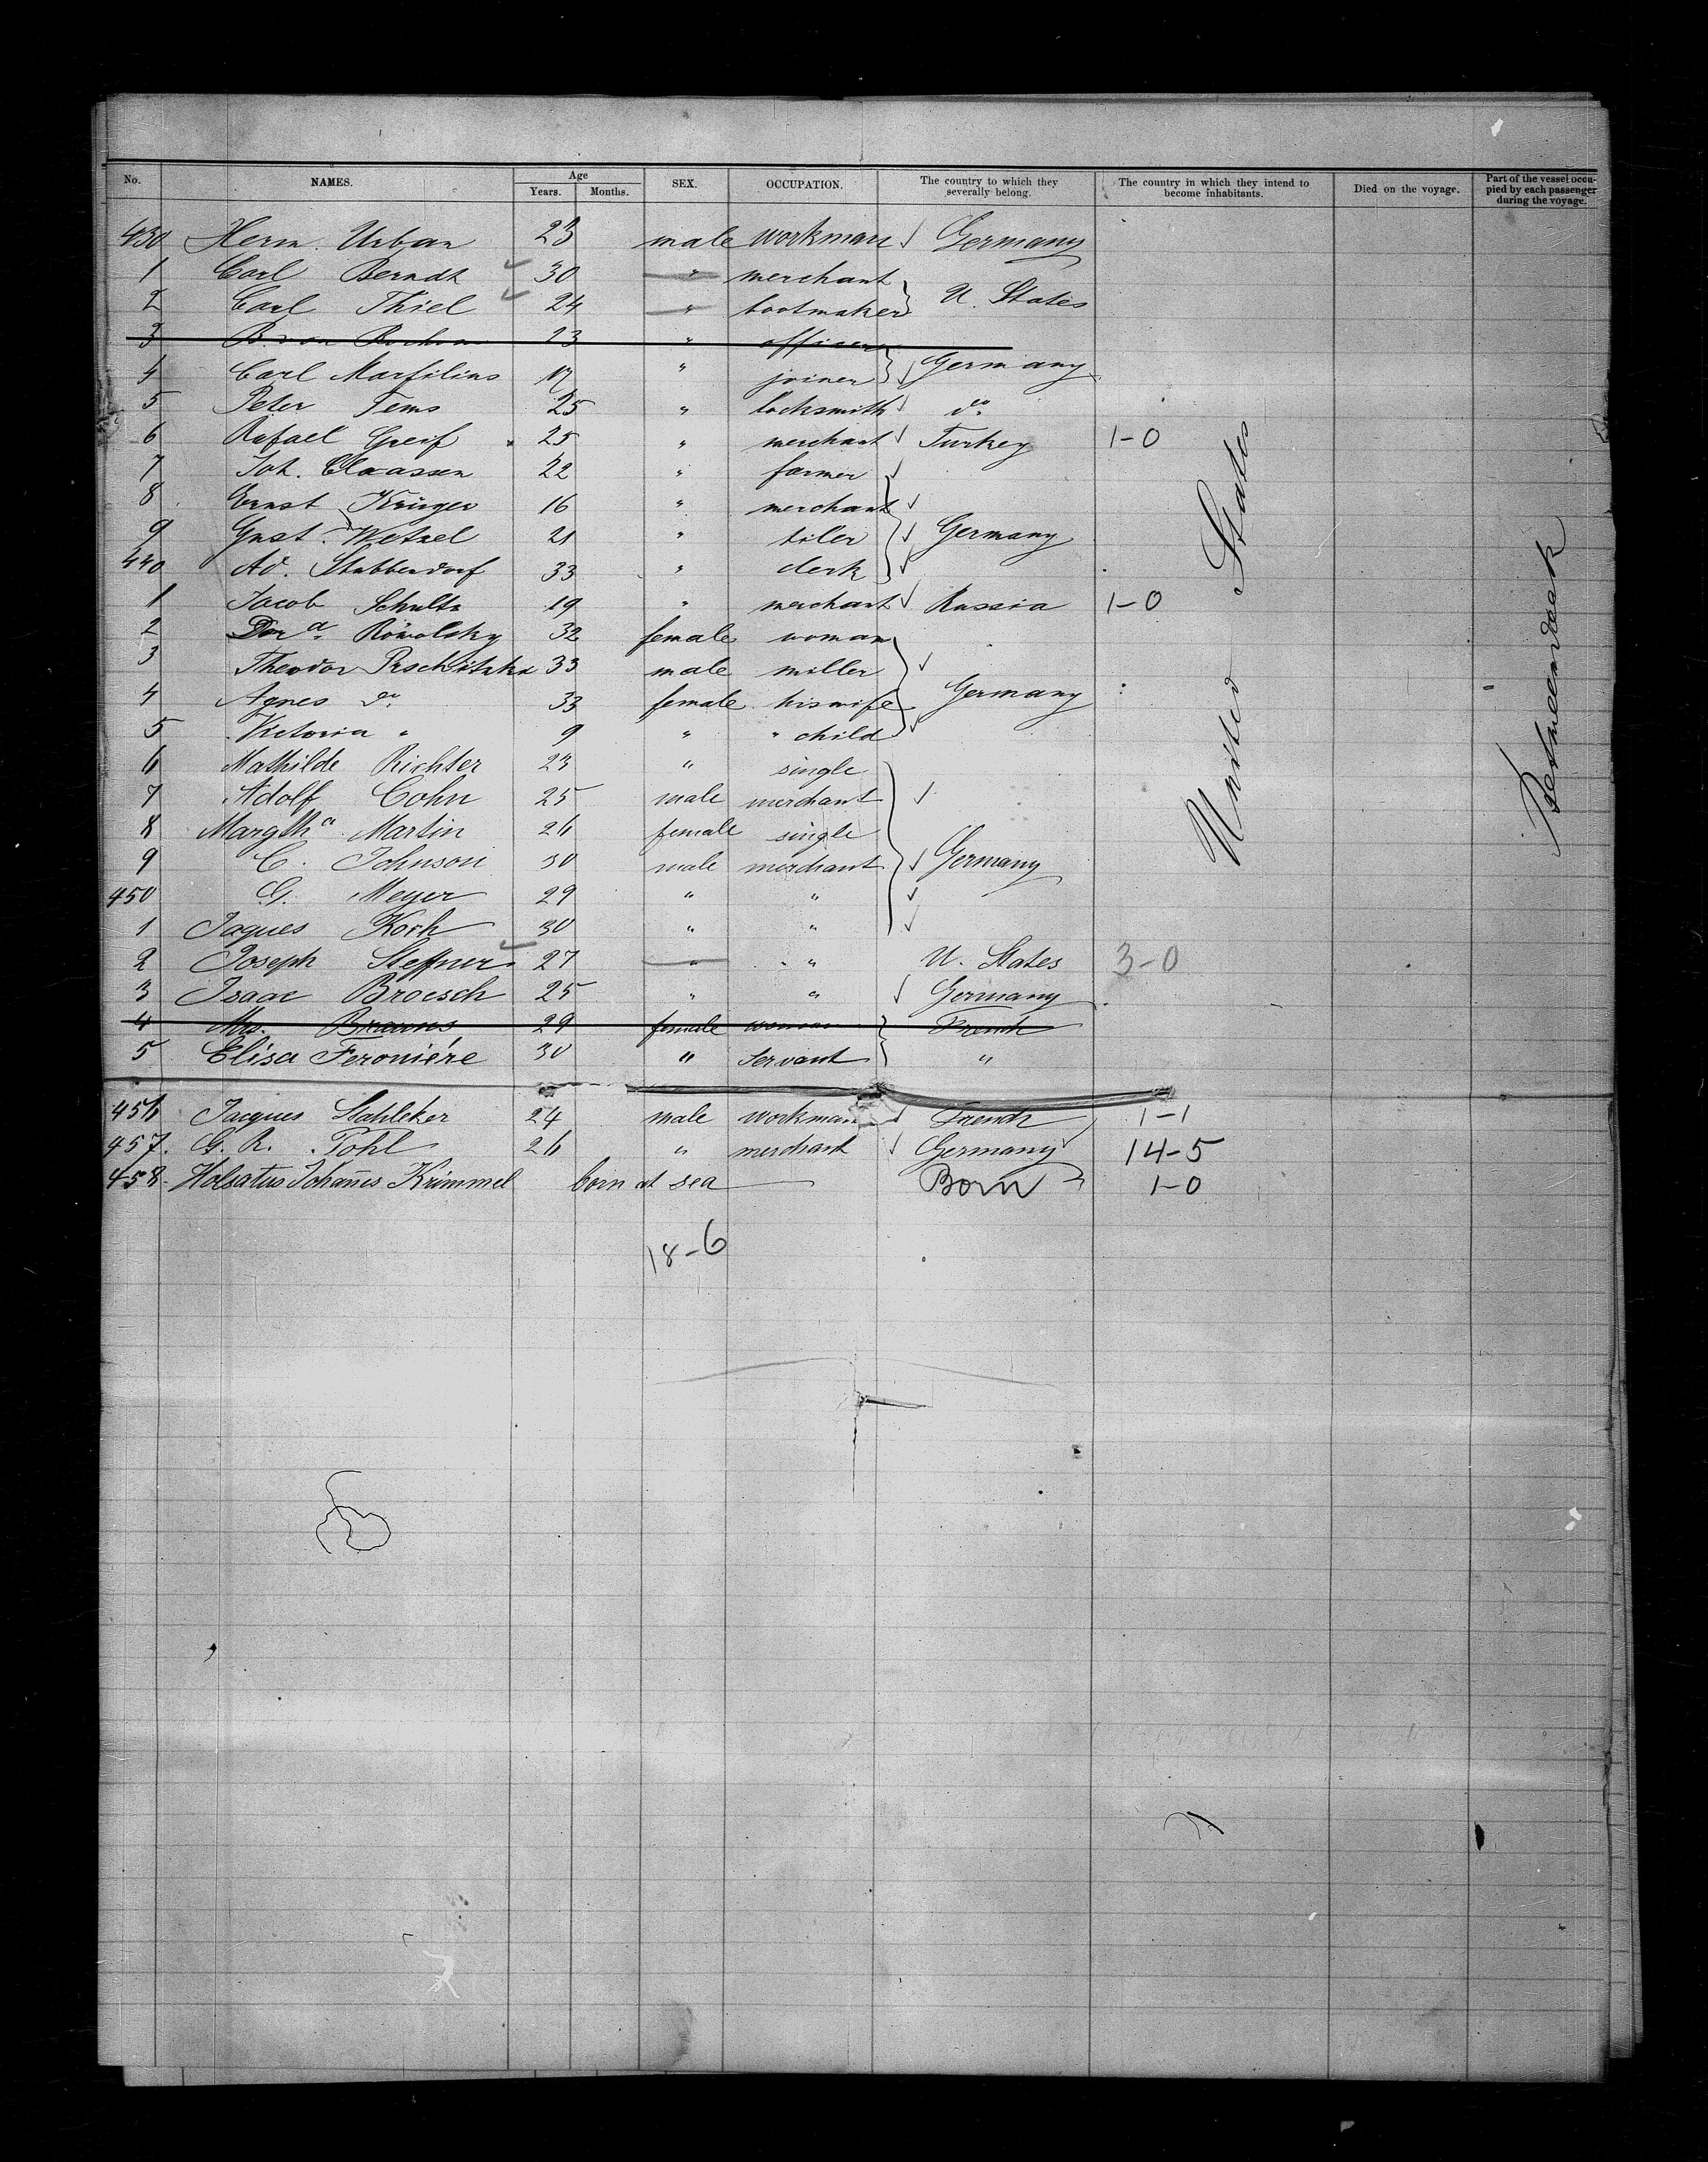 No. NAMES. Age Years. Months. SEX. OCCUPATION. The country to which they severally belong. The country in which they intend to become inhabitants. Died on the voyage. Part of the vessel occupied by each passenger during the voyage.
430 Herm. Urban 23 male workman ✓ Germany
1 Carl Berndt ✓ 30 " merchant
2 Carl Thiel ✓ 24 " bootmaker U. States
3 B. von 23 " officer
4 Carl Marfilius 17 " joiner ✓ Germany
5 Peter Tems 25 " locksmith ✓ do
6 Rafael Greif 25 " merchant ✓ Turkey 1-0
7 Joh. Claassen 22 " farmer ✓
8 Ernst Krüger 16 " merchant ✓
9 Gust. Wetzel 21 " tiler ✓ Germany
440 Ad. Stubbendorf 33 " clerk ✓
1 Jacob Schultz 19 " merchant ✓ Russia 1-0
2 Dora Rowolsky 32 female woman
3 Theodor 33 male miller ✓
4 Agnes do 33 female his wife Germany
5 Victoria " 9 " " child ✓
6 Mathilde Richter 23 " single
7 Adolf Cohn 25 male merchant ✓
8 Margtha Martin 26 female single
9 C. Johnson 30 male merchant ✓ Germany
450 G. Meyer 29 " " ✓
1 Jaques Koch 30 " " ✓
2 Joseph Steffner ✓ 27 " " U. States 3-0
3 Isaac Broesch 25 " " ✓ Germany
4 Mrs. Brauns 29 female woman French
5 Elisa Feroniére 30 " Servant "
456 Jacques Stahleker 24 male workman ✓ French 1-1
457. G. R. Pohl 26 " merchant ✓ Germany 14-5
458. Holsatus Johan̄es Krimmel born at sea Born 1-0
18-6
United States
Betweendeck